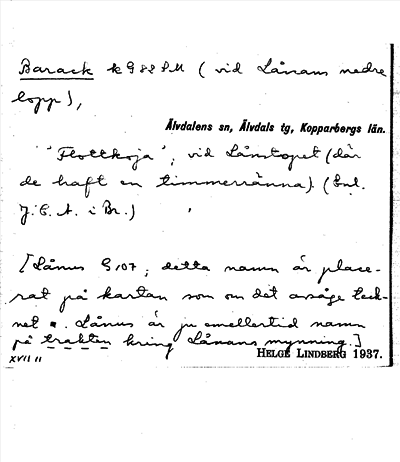 Barack k G 82 SM (vid Lånans nedre
lopp),
Älvdalens sn, Älvdals tg, Kopparbergs län.
"Flottkoja", vid Lånstopet (där
de haft en timmerränna). (Enl.
J. E. A. i Br.)
[Lånus G 107; detta namn är place-
rat på kartan som om det avsåge teck-
net ▪. Lånus är ju emellertid namn
på trakten kring Lånans mynning.]
XVII 11
HELGE LINDBERG 1937.